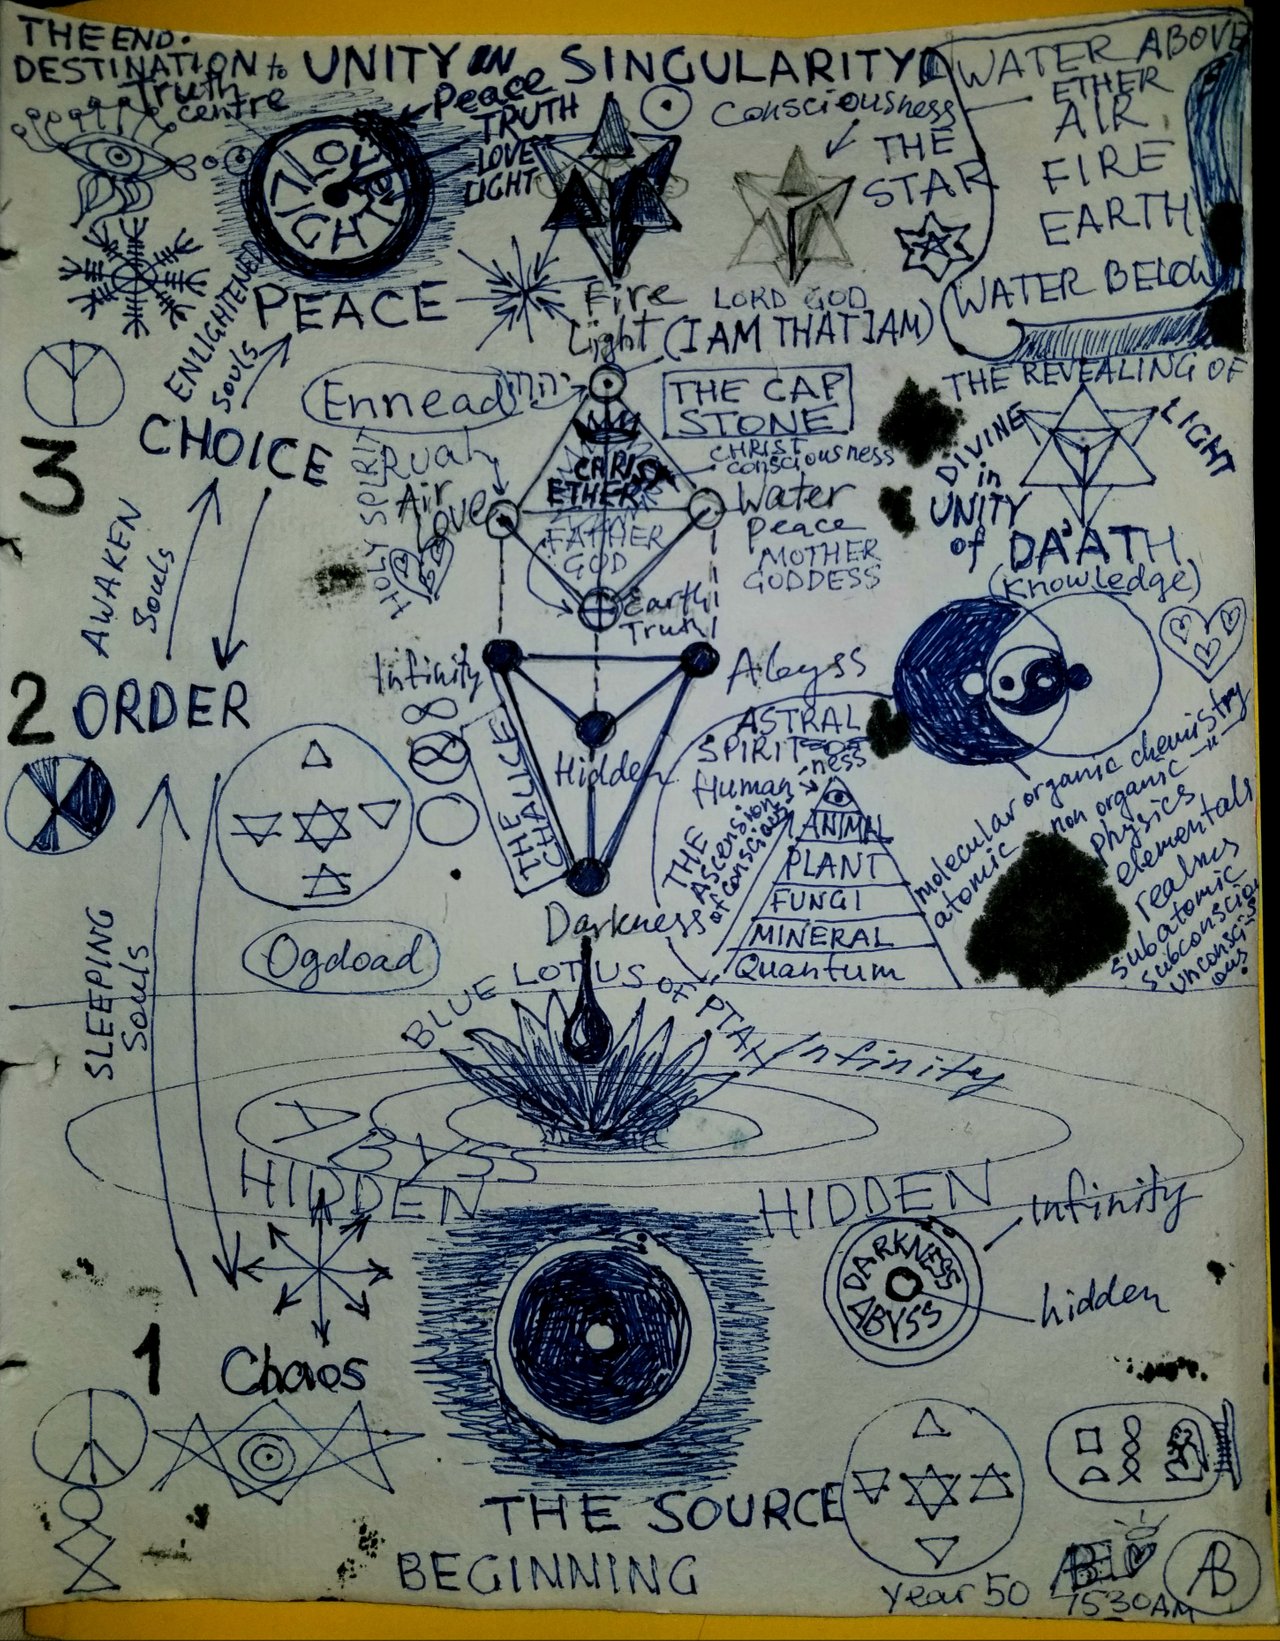 THE END.
DESTINATION to UNITY IN SINGULARITY
Truth
centre
Peace
TRUTH
LOVE
LIGHT
Consciousness
THE
STAR
WATER ABOVE
ETHER
AIR
FIRE
EARTH
WATER BELOW
LIGHT
PEACE
ENLIGHTENED
Souls
Fire
Light
LORD GOD
(I AM THAT I AM)
THE REVEALING OF
DIVINE
LIGHT
in
UNITY
of DA'ATH
(Knowledge)
Ennead
יהוה
THE CAP
STONE
CHRIST
consciousness
CHOICE
3
HOLY SPIRIT
Ruah
Air
Love
CHRIST
ETHER
FATHER
GOD
Water
Peace
MOTHER
GODDESS
Earth
Truth
AWAKEN
Souls
2 ORDER
Infinity
Abyss
Hidden
THE CHALICE
Darkness
ASTRAL
SPIRIT
Human
ness
THE
Ascension
of conscious
ANIMAL
PLANT
FUNGI
MINERAL
Quantum
molecular organic chemistry
atomic non organic -"-
Physics
elementals
realms
subatomic
subconscious
unconscious!
Ogdoad
SLEEPING
Souls
BLUE LOTUS OF PTAH
Infinity
ABYSS
HIDDEN
HIDDEN
Infinity
DARKNESS
ABYSS
hidden
1
Chaos
THE SOURCE
BEGINNING
Year 50
7530AM
AB